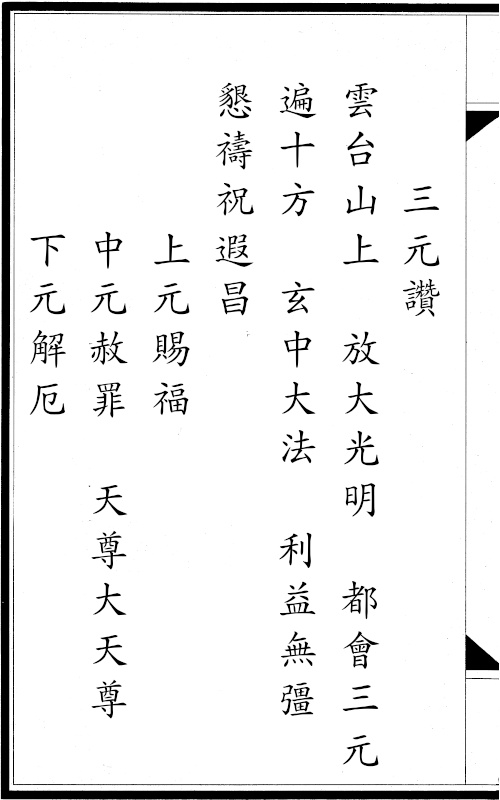 三元讚
雲台山上　放大光明　都會三元
遍十方　玄中大法　利益無彊
懇禱祝遐昌
上元賜福
中元赦罪　天尊大天尊
下元解厄